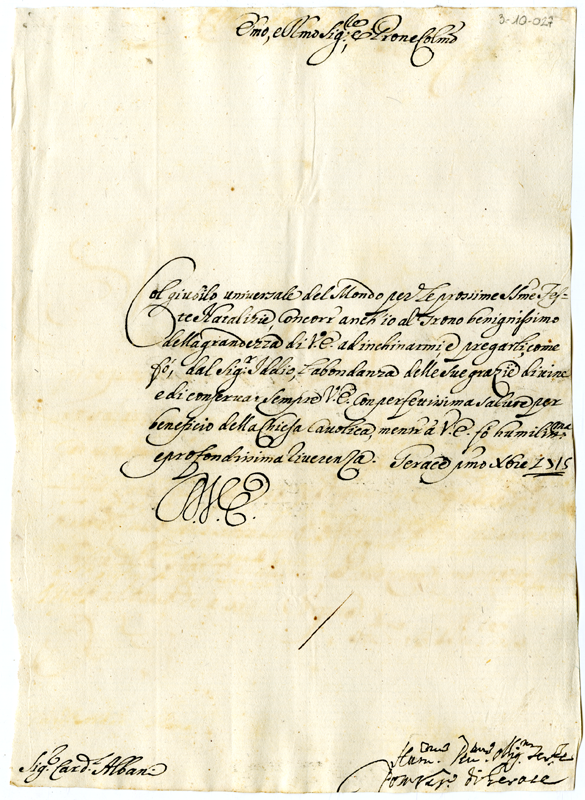 3-10-027
Emo, e Rmo Sig.re e Prone Colmo
Col giubilo universale del Mondo per le prossime SSme Fes-
te Natalizie, Concorr' anch'io al Trono benignissimo
della grandezza di V.E. ad inchinarmi, e pregarli, come
fò, dal Sig.r Iddio, l'abondanza delle Sue grazie divine
e di conservar sempre V.E. con perfettissima salute per
beneficio della Chiesa Cattolica, mentr' à V.E. fò humiliss.ma
e profondissima riverenza. Gerace pmo Xbre 1715
D.V.E.
Sig.r Card.l Albani
Hum.mo Dev.mo Oblig.mo Ser.re
di Gerace